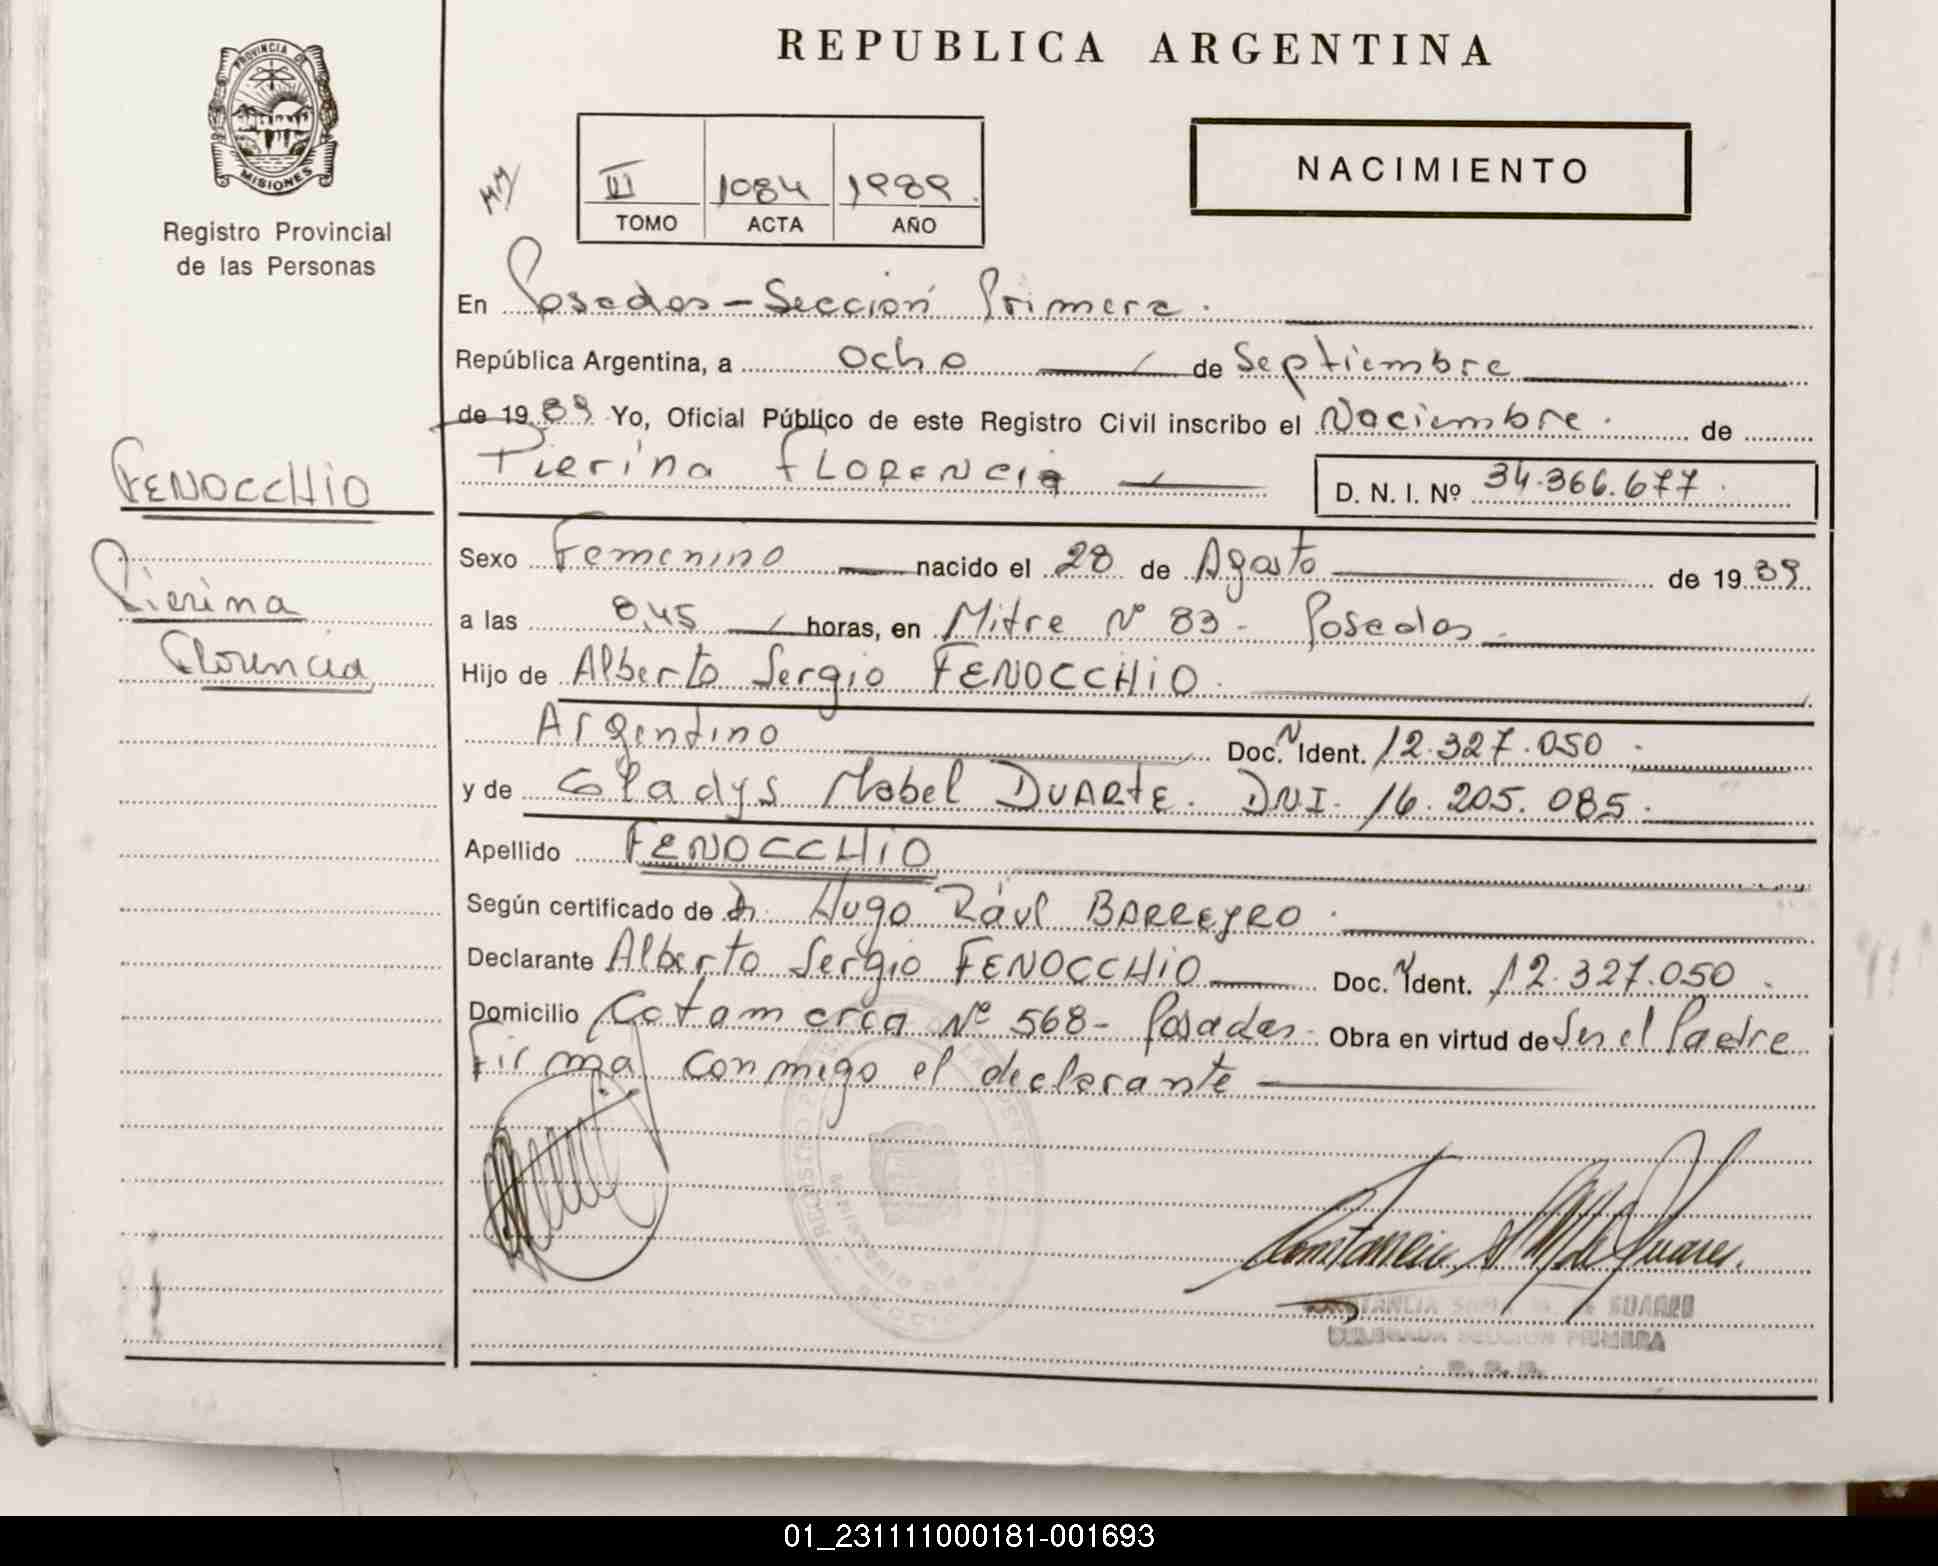 REPUBLICA ARGENTINA
PROVINCIA DE
MISIONES
Registro Provincial
de las Personas
III 1084 1989
TOMO ACTA AÑO
NACIMIENTO
En Posadas - Sección Primera.
República Argentina, a ocho de Septiembre
de 1989 Yo, Oficial Público de este Registro Civil inscribo el Naciembre. de
Pierina FLORENCIA D. N. I. Nº 34.366.677
FENOCCHIO
Pierina
Florencia
Sexo Femenino nacido el 28 de Agosto de 1989
a las 8,45 horas, en Mitre Nº 83 - Posadas
Hijo de Alberto Sergio FENOCCHIO.
Argentino Doc. N Ident. 12.327.050
y de Gladys Mabel DUARTE. DNI. 16.205.085.
Apellido FENOCCHIO
Según certificado de Dr. Hugo Raúl BARREYRO.
Declarante Alberto Sergio FENOCCHIO Doc. N Ident. 12.327.050
Domicilio Catamarca Nº 568 - Posadas. Obra en virtud de Ser el Padre
Firma conmigo el declarante
CONSTANCIA SUAREZ
DELEGADA SECCION PRIMERA
01_231111000181-001693